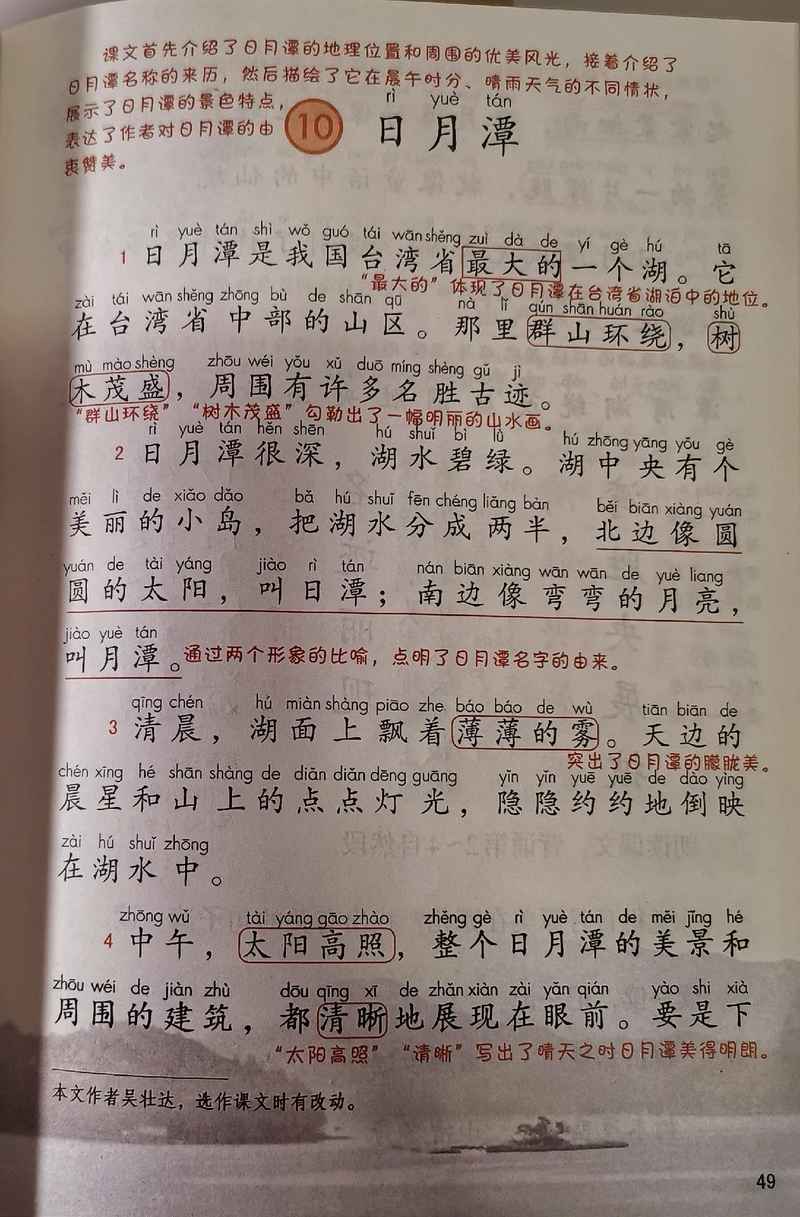 课文首先介绍了日月潭的地理位置和周围的优美风光，接着介绍了
日月潭名称的来历，然后描绘了它在晨午时分、晴雨天气的不同情状，
展示了日月潭的景色特点，
表达了作者对日月潭的由
衷赞美。
rì yuè tán
10 日月潭
rì yuè tán shì wǒ guó tái wān shěng zuì dà de yí gè hú tā
1 日月潭是我国台湾省最大的一个湖。它
“最大的”体现了日月潭在台湾省湖泊中的地位。
zài tái wān shěng zhōng bù de shān qū nà lǐ qún shān huán rào shù
在台湾省中部的山区。那里群山环绕，树
mù mào shèng zhōu wéi yǒu xǔ duō míng shèng gǔ jì
木茂盛，周围有许多名胜古迹。
“群山环绕”“树木茂盛”勾勒出了一幅明丽的山水画。
rì yuè tán hěn shēn hú shuǐ bì lǜ hú zhōng yāng yǒu gè
2 日月潭很深，湖水碧绿。湖中央有个
měi lì de xiǎo dǎo bǎ hú shuǐ fēn chéng liǎng bàn běi biān xiàng yuán
美丽的小岛，把湖水分成两半，北边像圆
yuán de tài yáng jiào rì tán nán biān xiàng wān wān de yuè liang
圆的太阳，叫日潭；南边像弯弯的月亮，
jiào yuè tán
叫月潭。通过两个形象的比喻，点明了日月潭名字的由来。
qīng chén hú miàn shàng piāo zhe báo báo de wù tiān biān de
3 清晨，湖面上飘着薄薄的雾。天边的
突出了日月潭的朦胧美。
chén xīng hé shān shàng de diǎn diǎn dēng guāng yǐn yǐn yuē yuē de dào yìng
晨星和山上的点点灯光，隐隐约约地倒映
zài hú shuǐ zhōng
在湖水中。
zhōng wǔ tài yáng gāo zhào zhěng gè rì yuè tán de měi jǐng hé
4 中午，太阳高照，整个日月潭的美景和
zhōu wéi de jiàn zhù dōu qīng xī de zhǎn xiàn zài yǎn qián yào shi xià
周围的建筑，都清晰地展现在眼前。要是下
“太阳高照”“清晰”写出了晴天之时日月潭美得明朗。
本文作者吴壮达，选作课文时有改动。
49